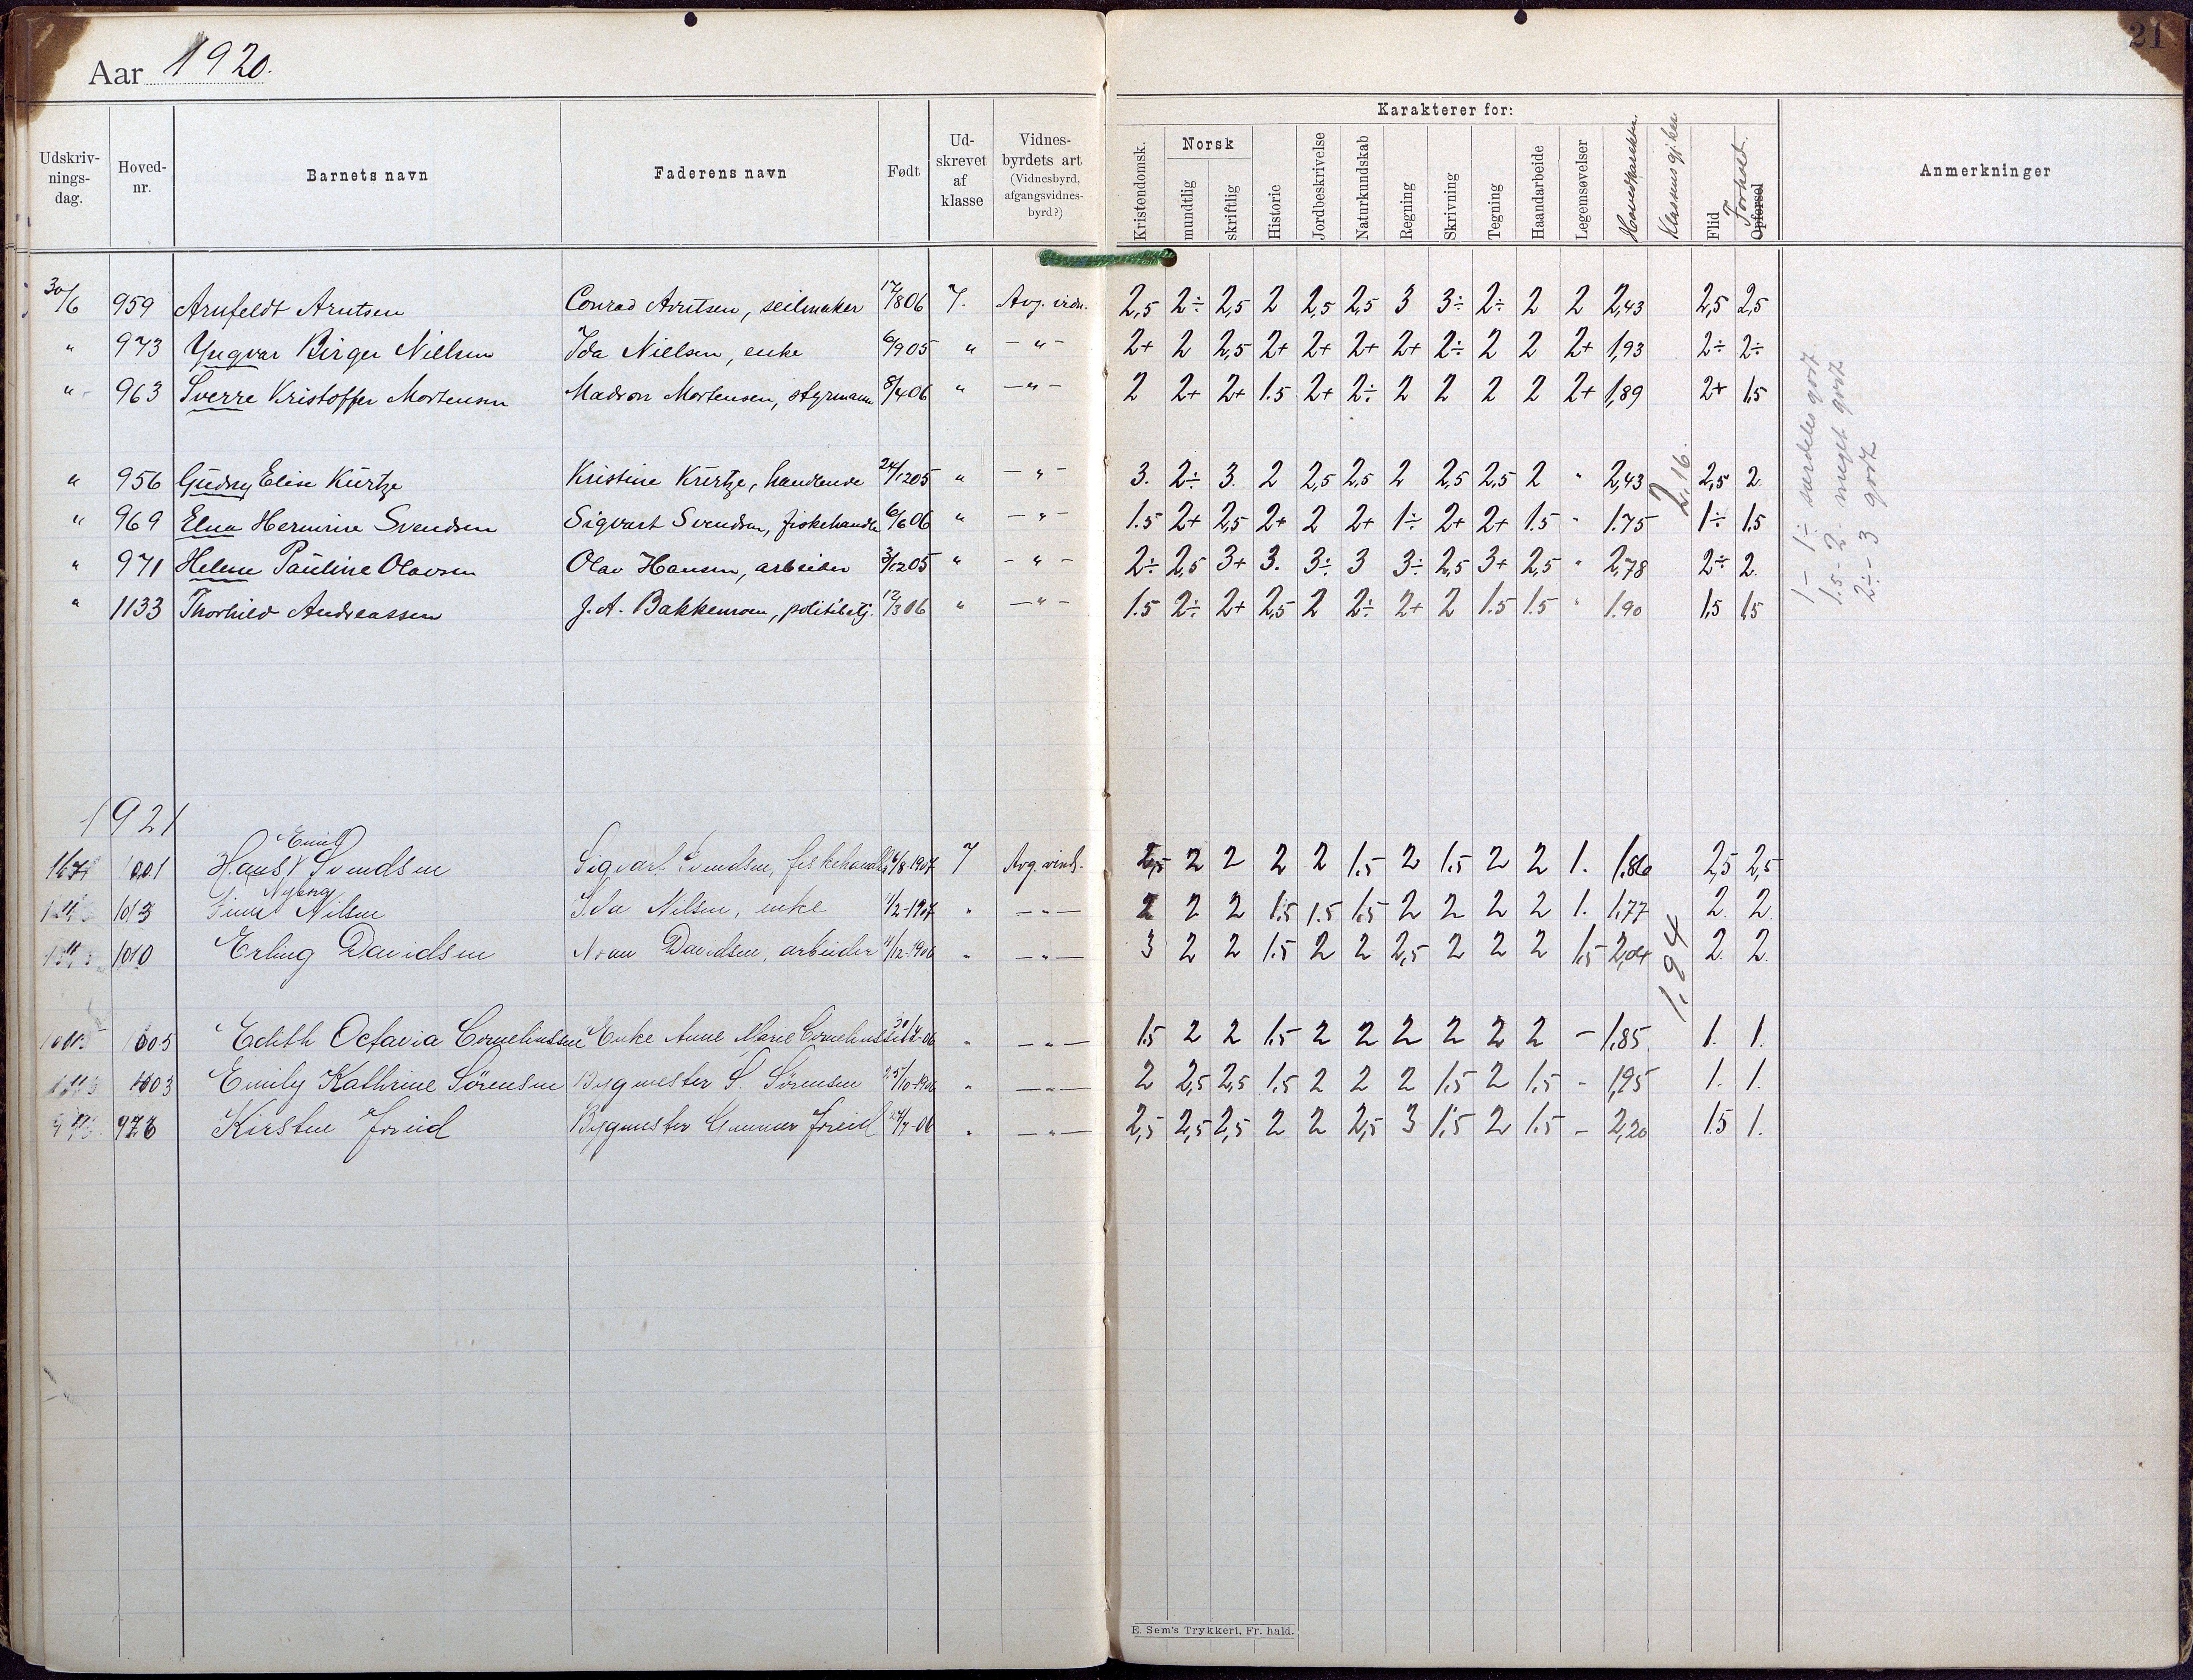 Aar 1920.
21
Udskriv-nings-dag. Hoved-nr. Barnets navn Faderens navn Født Ud-skrevet af klasse Vidnes-byrdets art (Vidnesbyrd, afgangsvidnes-byrd?)
Karakterer for:
Kristendomsk. Norsk mundtlig skriftlig Historie Jordbeskrivelse Naturkundskab Regning Skrivning Tegning Haandarbeide Legemsøvelser Hovedkarakter. Flid Opførsel Forhold. Anmerkninger
30/6 959 Arnfeldt Arntsen Conrad Arntsen, seilmaker 17/8 06 7. Avg. vidn. 2,5 2÷ 2,5 2 2,5 2,5 3 3÷ 2÷ 2 2 2,43 2,5 2,5
" 973 Yngvar Birger Nielsen Ida Nielsen, enke 6/9 05 " -"- 2+ 2 2,5 2+ 2+ 2+ 2+ 2÷ 2 2 2+ 1,93 2÷ 2÷
" 963 Sverre Kristoffer Mortensen Mortensen, styrmann 8/4 06 " -"- 2 2+ 2+ 1.5 2+ 2÷ 2 2 2 2 2+ 1,89 2+ 1,5
" 956 Gudny Elise Kürtze Kristine Kürtze, handlende 24/12 05 " -"- 3. 2÷ 3. 2 2,5 2,5 2 2,5 2,5 2 " 2,43 2,5 2.
" 969 Elna Hermine Svendsen Sigvart Svendsen, fiskehandle 6/6 06 " -"- 1.5 2+ 2,5 2+ 2 2+ 1÷ 2+ 2+ 1.5 " 1.75 1÷ 1.5
" 971 Helene Pauline Olavsen Olav Hansen, arbeider 3/12 05 " -"- 2÷ 2,5 3+ 3. 3÷ 3 3÷ 2,5 3+ 2,5 " 2,78 2÷ 2.
" 1133 Thorhild Andreassen J. A. Bakkemoen, politibetj. 12/3 06 " -"- 1.5 2÷ 2+ 2,5 2 2÷ 2+ 2 1.5 1.5 " 1.90 1,5 1,5
2,16.
1 - 1÷ særdeles godt
1.5 - 2 meget godt
2÷ - 3 godt
1921
1001 Hans Emil Svendsen Sigvart Svendsen, fiskehandler 1907 7 Avg. vidn. 2,5 2 2 2 2 1.5 2 1.5 2 2 1. 1.86 2,5 2,5
1013 Nyborg Nilsen Ida Nilsen, enke 1/2-1907 " -"- 2 2 2 1.5 1.5 1.5 2 2 2 2 1. 1,77 2. 2.
1010 Erling Davidsen Davidsen, arbeider 11/12-1906 " -"- 3 2 2 1.5 2 2 2,5 2 2 2 1,5 2,04 2. 2.
1005 Edith Octavia Corneliussen Enke Anne Marie Corneliussen -06 " -"- 1.5 2 2 1.5 2 2 2 2 2 2 - 1,85. 1. 1.
1003 Emily Kathrine Sörensen Bygmester S. Sörensen 25/10-1906 " -"- 2 2,5 2,5 1.5 2 2 2 1.5 2 1.5 - 1,95 1. 1.
978 Kirsten Joreid Bygmester Gunnar Joreid 24/7-06 " -"- 2,5 2,5 2,5 2 2 2,5 3 1.5 2 1.5 - 2,20 1.5 1.
1,94
E. Sem's Trykkeri, Fr. hald.